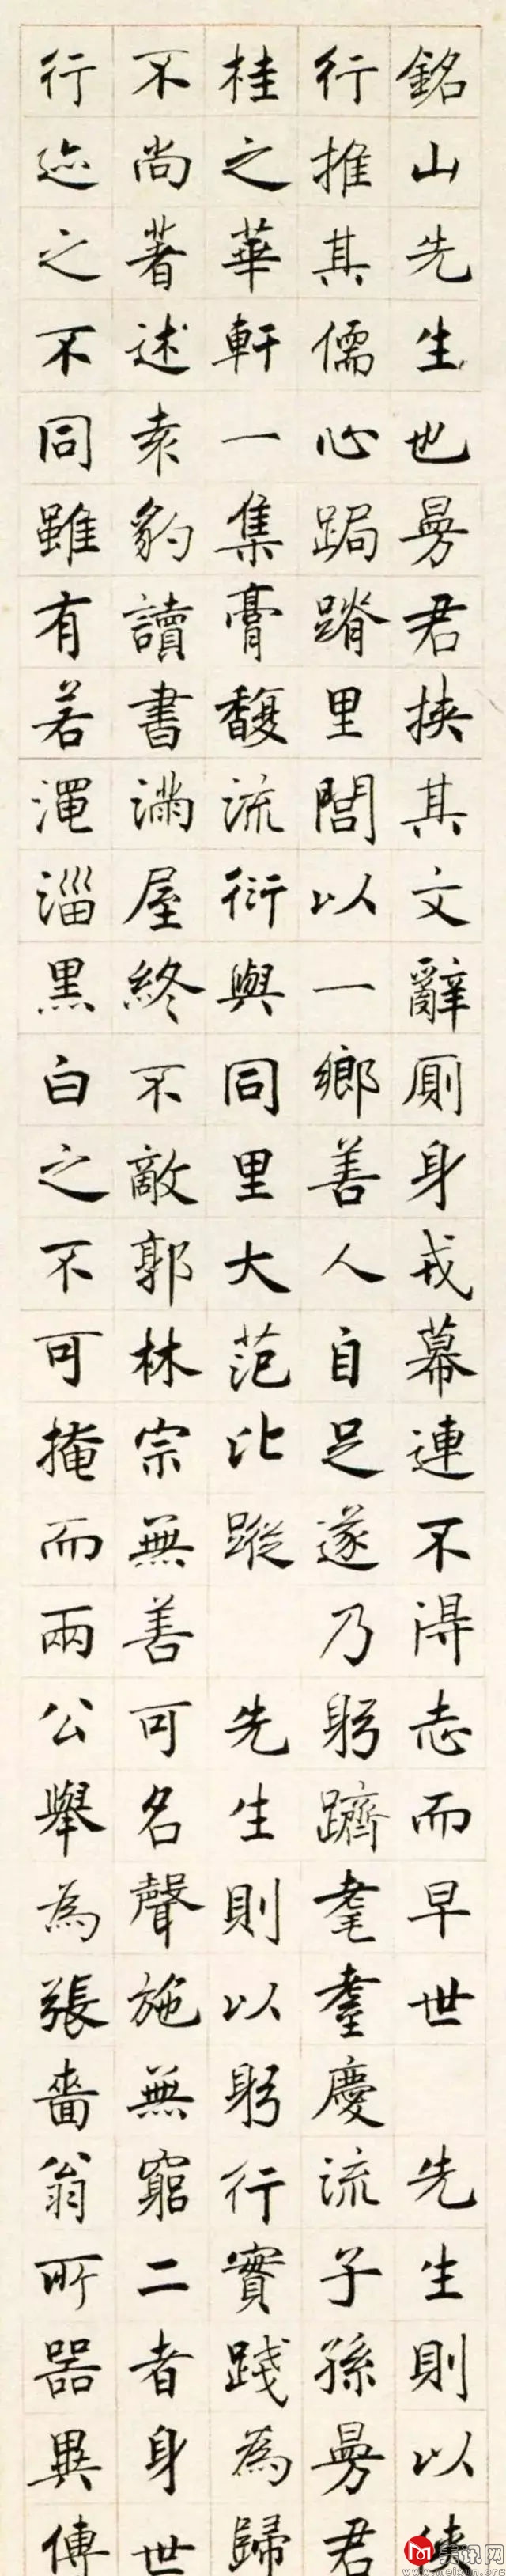 銘山先生也曼君挾其文辭厠身戎幕連不得志而早世　先生則以俠
行推其儒心跼蹐里閭以一鄉善人自足遂乃躬躋耄耋慶流子孫曼君
桂之華軒一集膏馥流衍與同里大范比蹤　先生則以躬行實踐為歸
不尚著述袁豹讀書滿屋終不敵郭林宗無善可名聲施無窮二者身世
行迹之不同雖有若澠淄黑白之不可掩而兩公舉為張嗇翁所器異傳
美术讯网
www.meixun.org